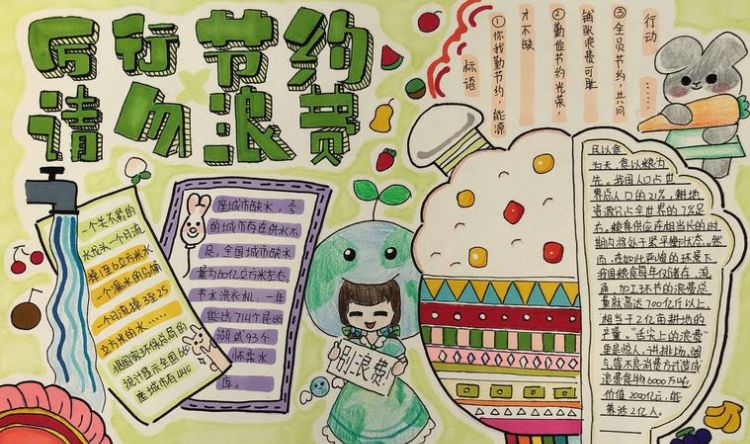 厉行节约
请勿浪费
一个关不紧的
水龙头一个月流
掉1至6立方米水
一个漏水的马桶
一个月流掉3至25
立方米的水……
根据国家环保总局的
统计显示全国66
座城市有440
座城市缺水，
的城市存在供水不
足，全国城市缺水
量为60亿立方米左右
节水洗衣机，一年
能出714个昆明
湖或93个
怀柔水
库。
别浪费！
标语
①你我勤节约，能源
才不缺
②勤俭节约光荣，
铺张浪费可耻
③全员节约，共同
行动……
民以食
为天，食以粮为
先。我国人口占世
界总人口的21%，耕地
资源只占全世界的7%左
右。粮食供应在相当长的时
期内将处于紧平衡状态。然
而，在如此严峻的环境下
我国粮食每年仅储存、流
通、加工环节的浪费总
量就高达700亿斤以上，
相当于2亿亩耕地的
产量。“舌尖上的浪费”
更是惊人，讲排场、明
气等不良消费方式造成
浪费食物6000万吨
价值2000亿元，能
养活2亿人。